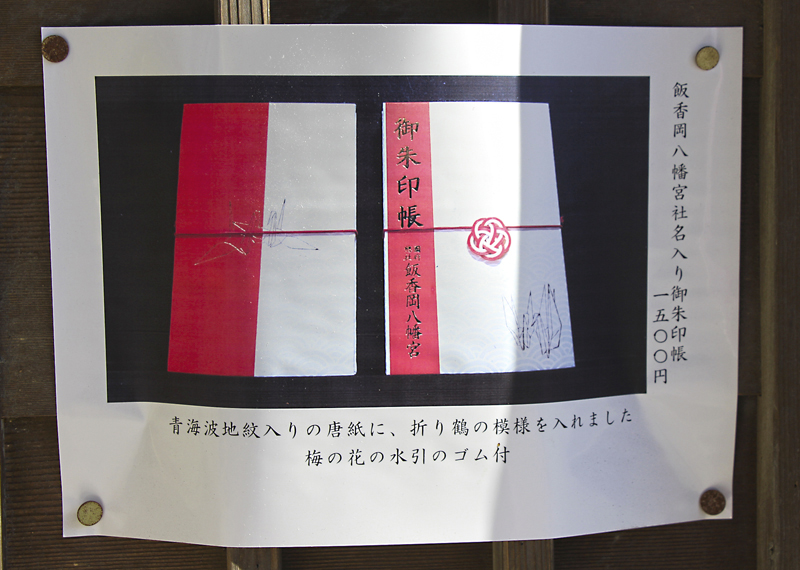 飯香岡八幡宮社名入り御朱印帳
一五〇〇円
御朱印帳
飯香岡八幡宮
青海波地紋入りの唐紙に、折り鶴の模様を入れました
梅の花の水引のゴム付